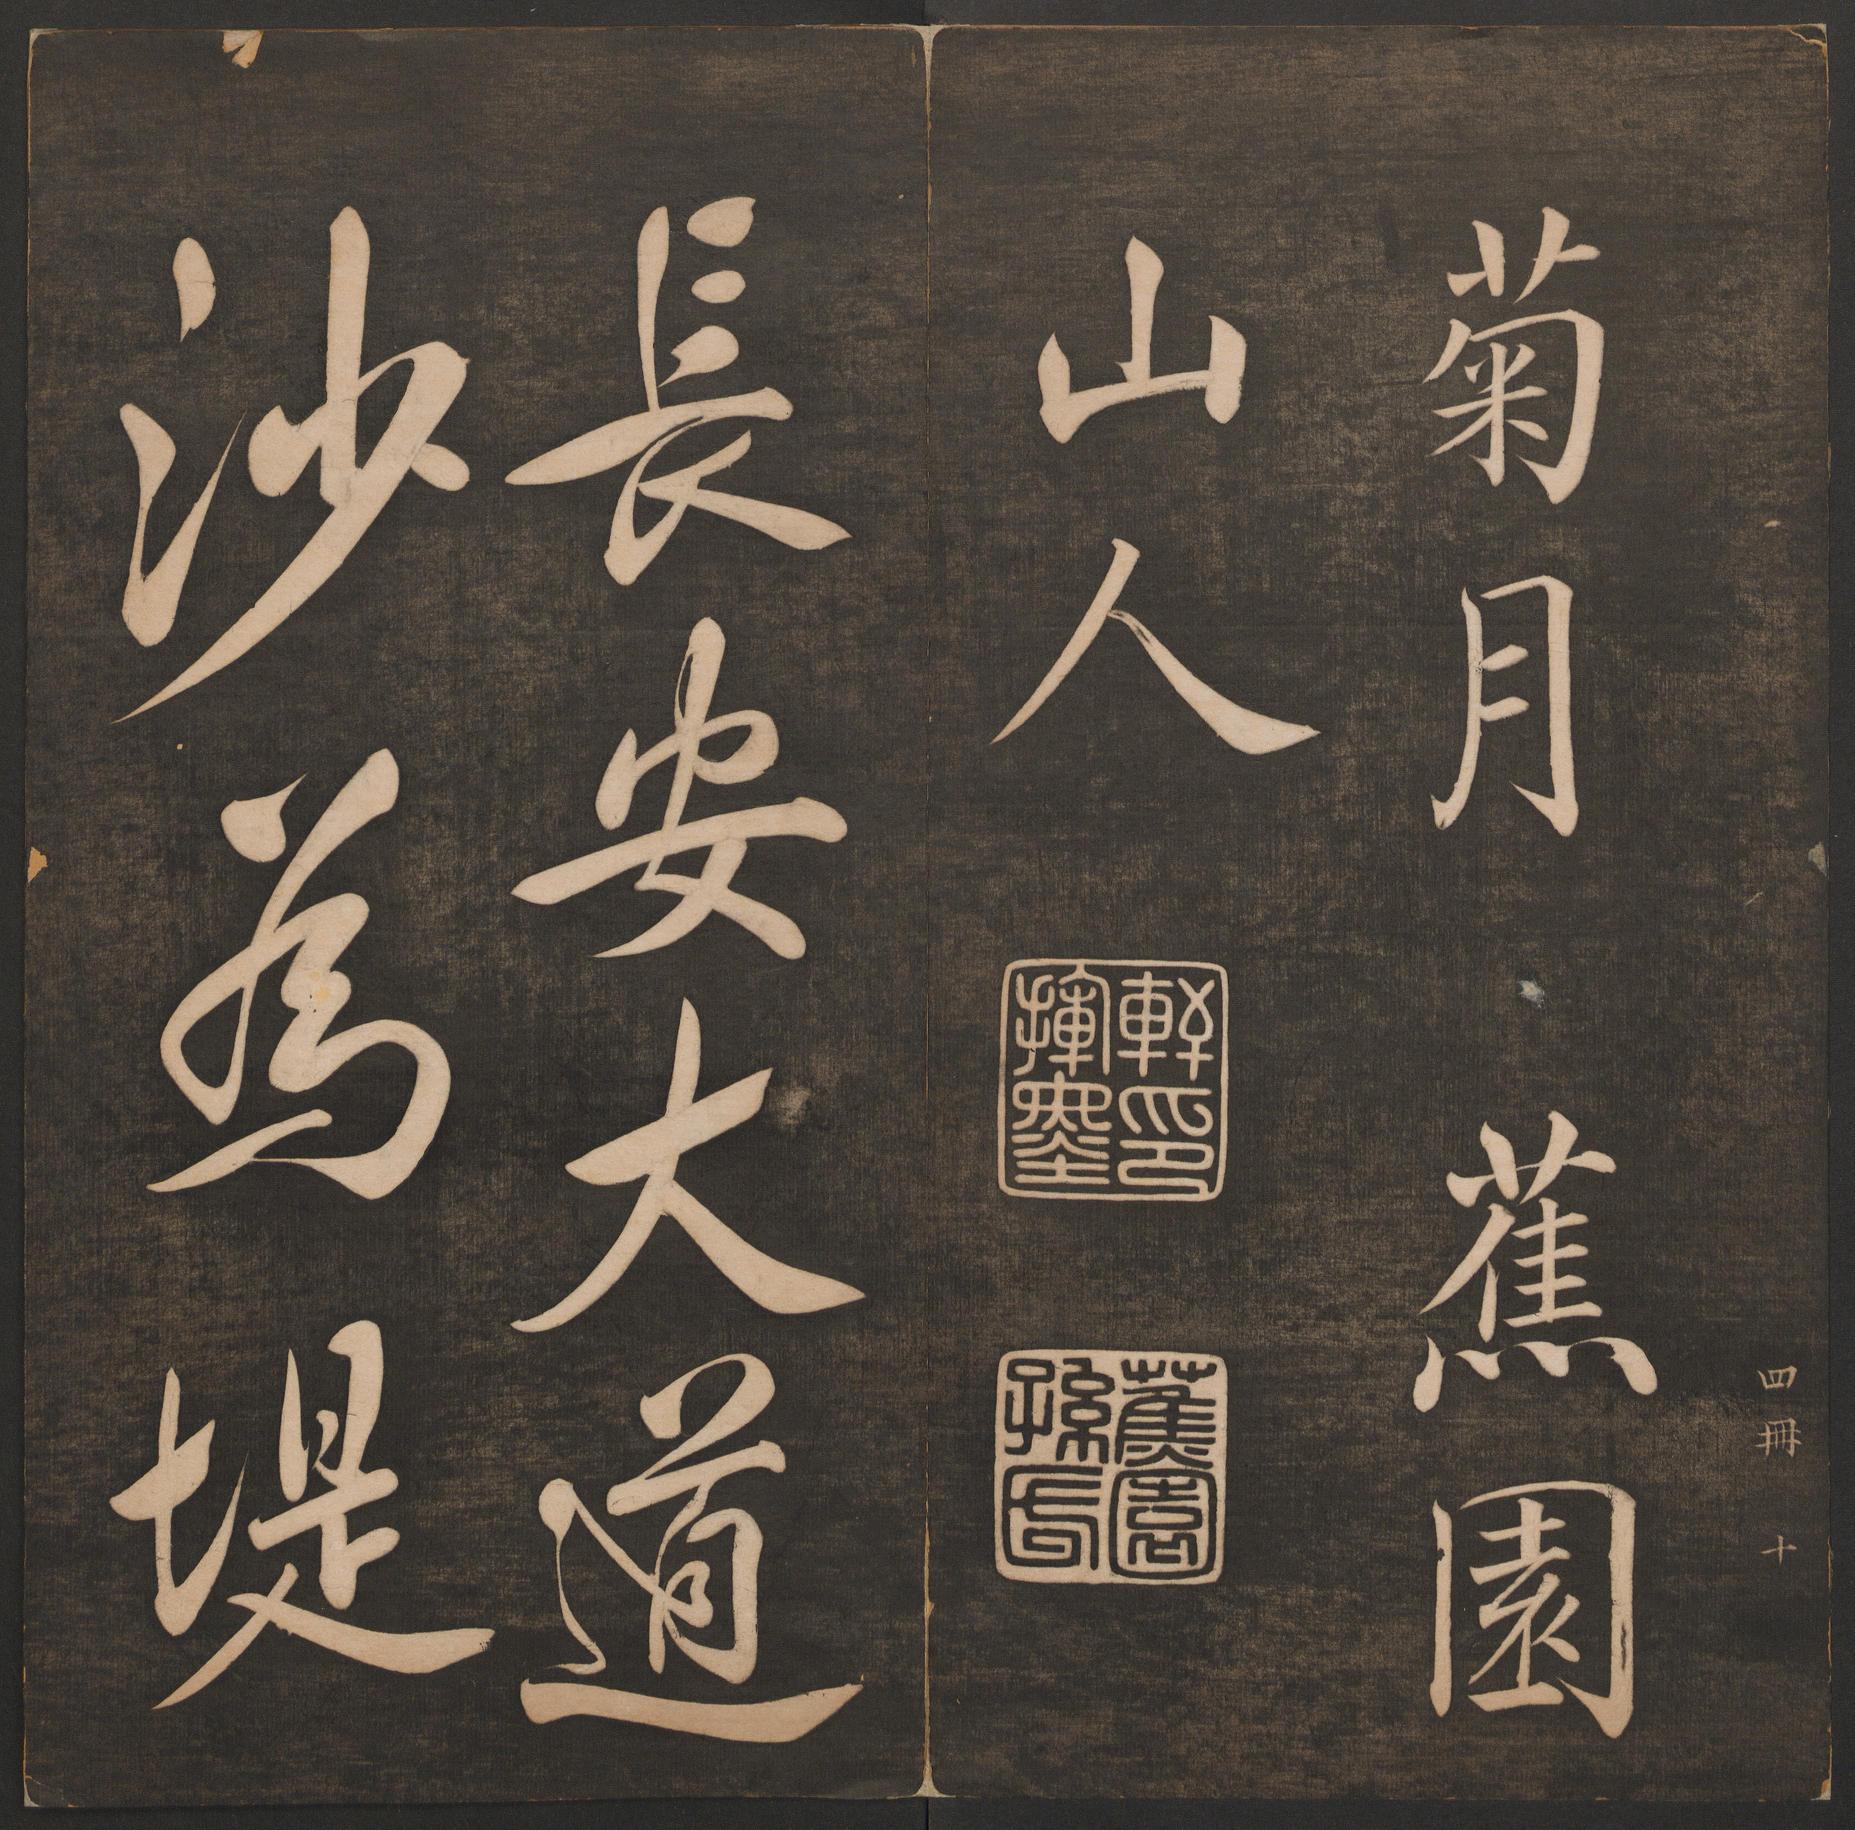 四冊 十
菊月 蕉園
山人
蕉園
長安大道
沙為堤